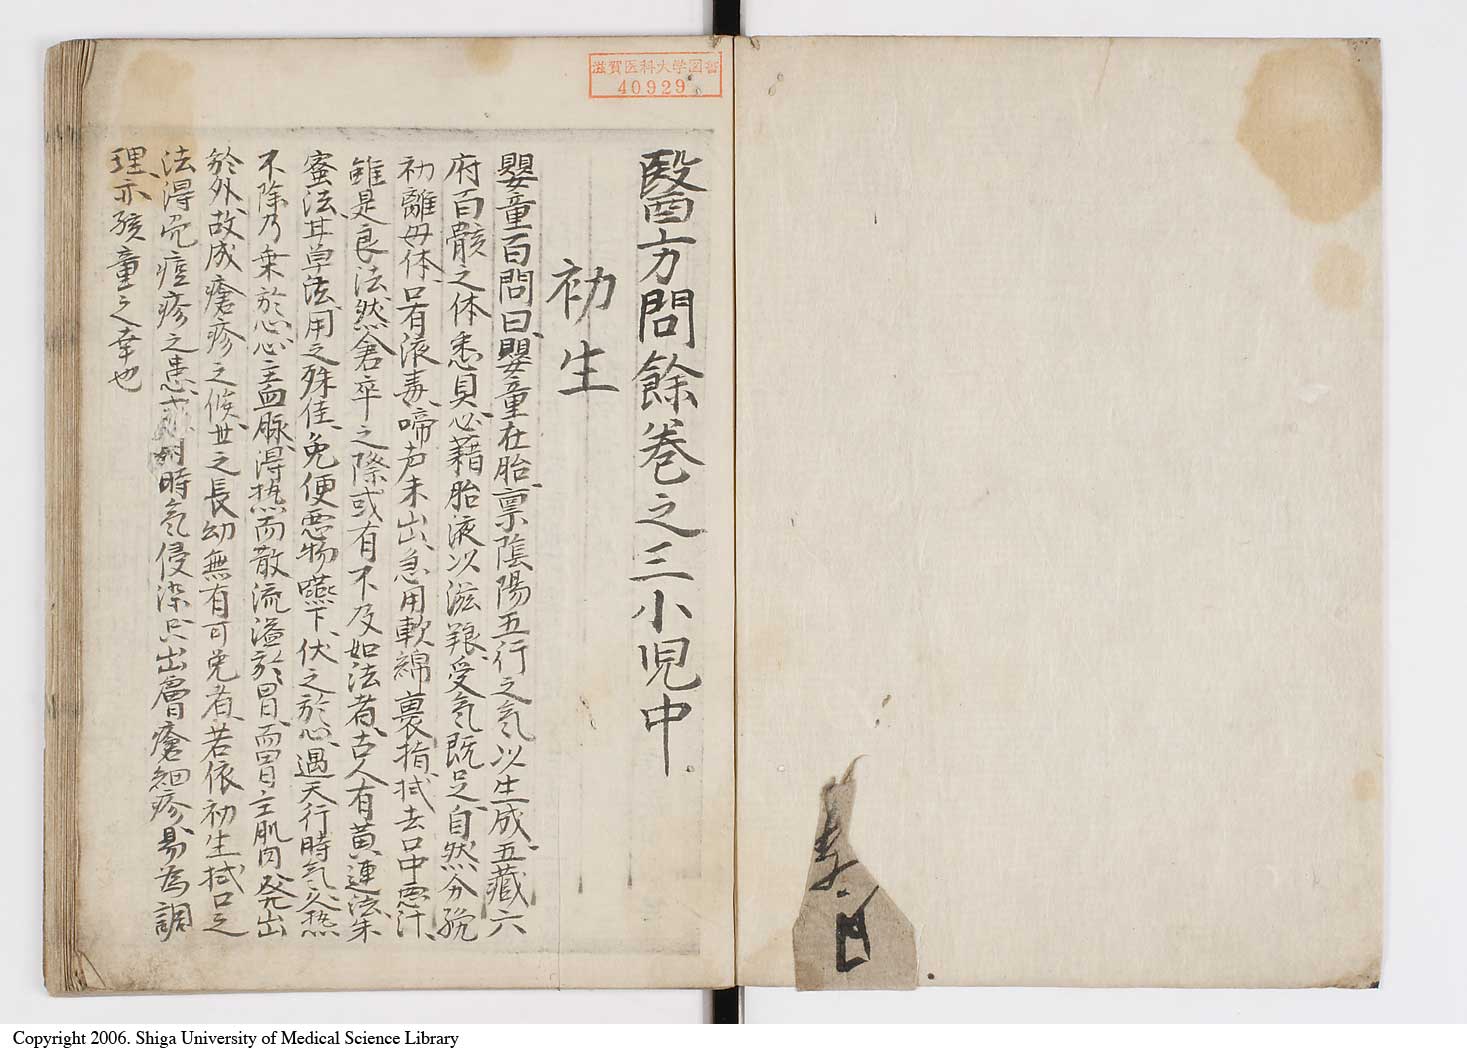 滋賀医科大学図書
40929
醫方問餘巻之三小児中
初生
嬰童百問曰嬰童在胎禀陰陽五行之氣以生成五藏六
府百骸之体悉具必藉胎液以滋養受氣既足自然分娩
初離母体口有液毒啼声未出急用軟綿裹指拭去口中悪汁
雖是良法然倉卒之際或有不及如法者古人有黄連法朱
蜜法甘草法用之殊佳免使悪物嚥下伏之於心遇天行時氣久熱
不除乃乗於心心主血脉得熱而散流溢於胃而胃主肌肉発出
於外故成瘡疹之候世之長幼無有可免者若依初生拭口之
法得免痘疹之患 時氣侵染只出膚瘡細疹易為調
理亦孩童之幸也
Copyright 2006. Shiga University of Medical Science Library